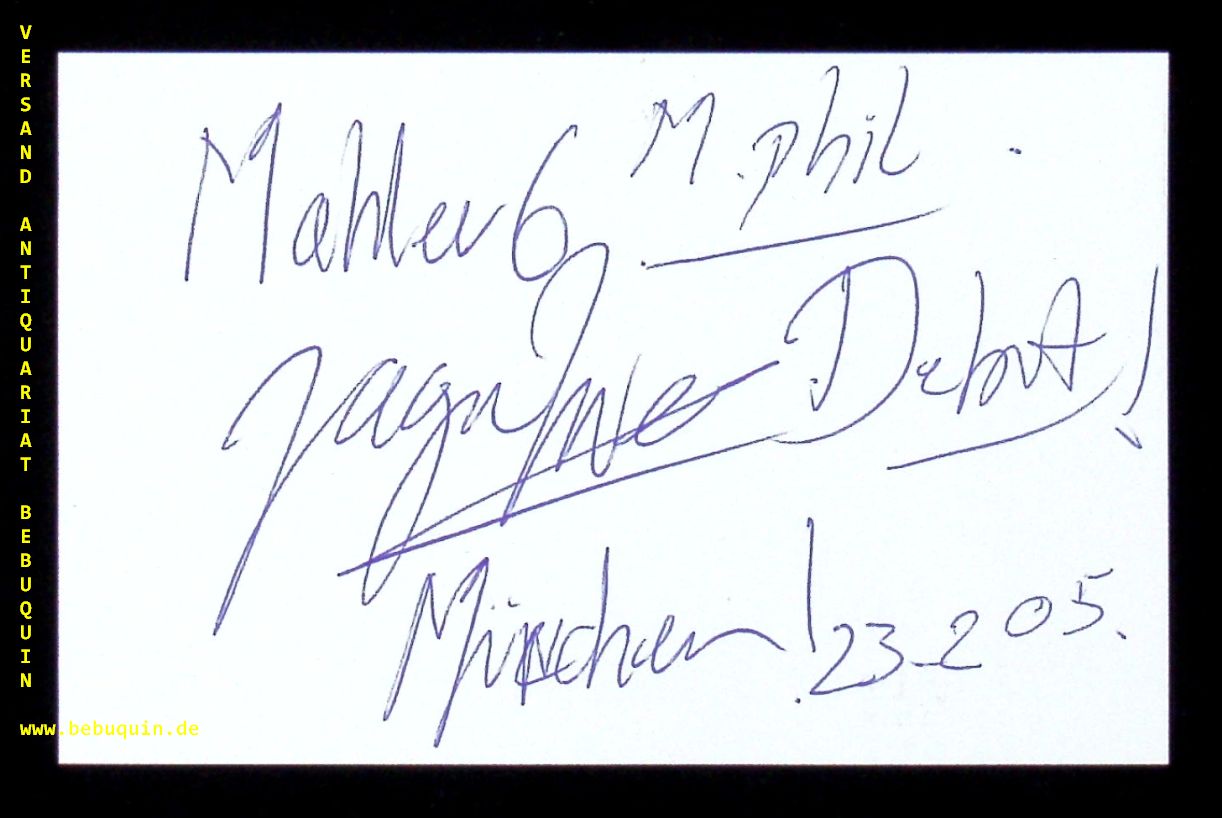 VERSAND ANTIQUARIAT BEBUQUIN
Mahler 6 M. phil.
Debut!
München! 23-2 05.
www.bebuquin.de